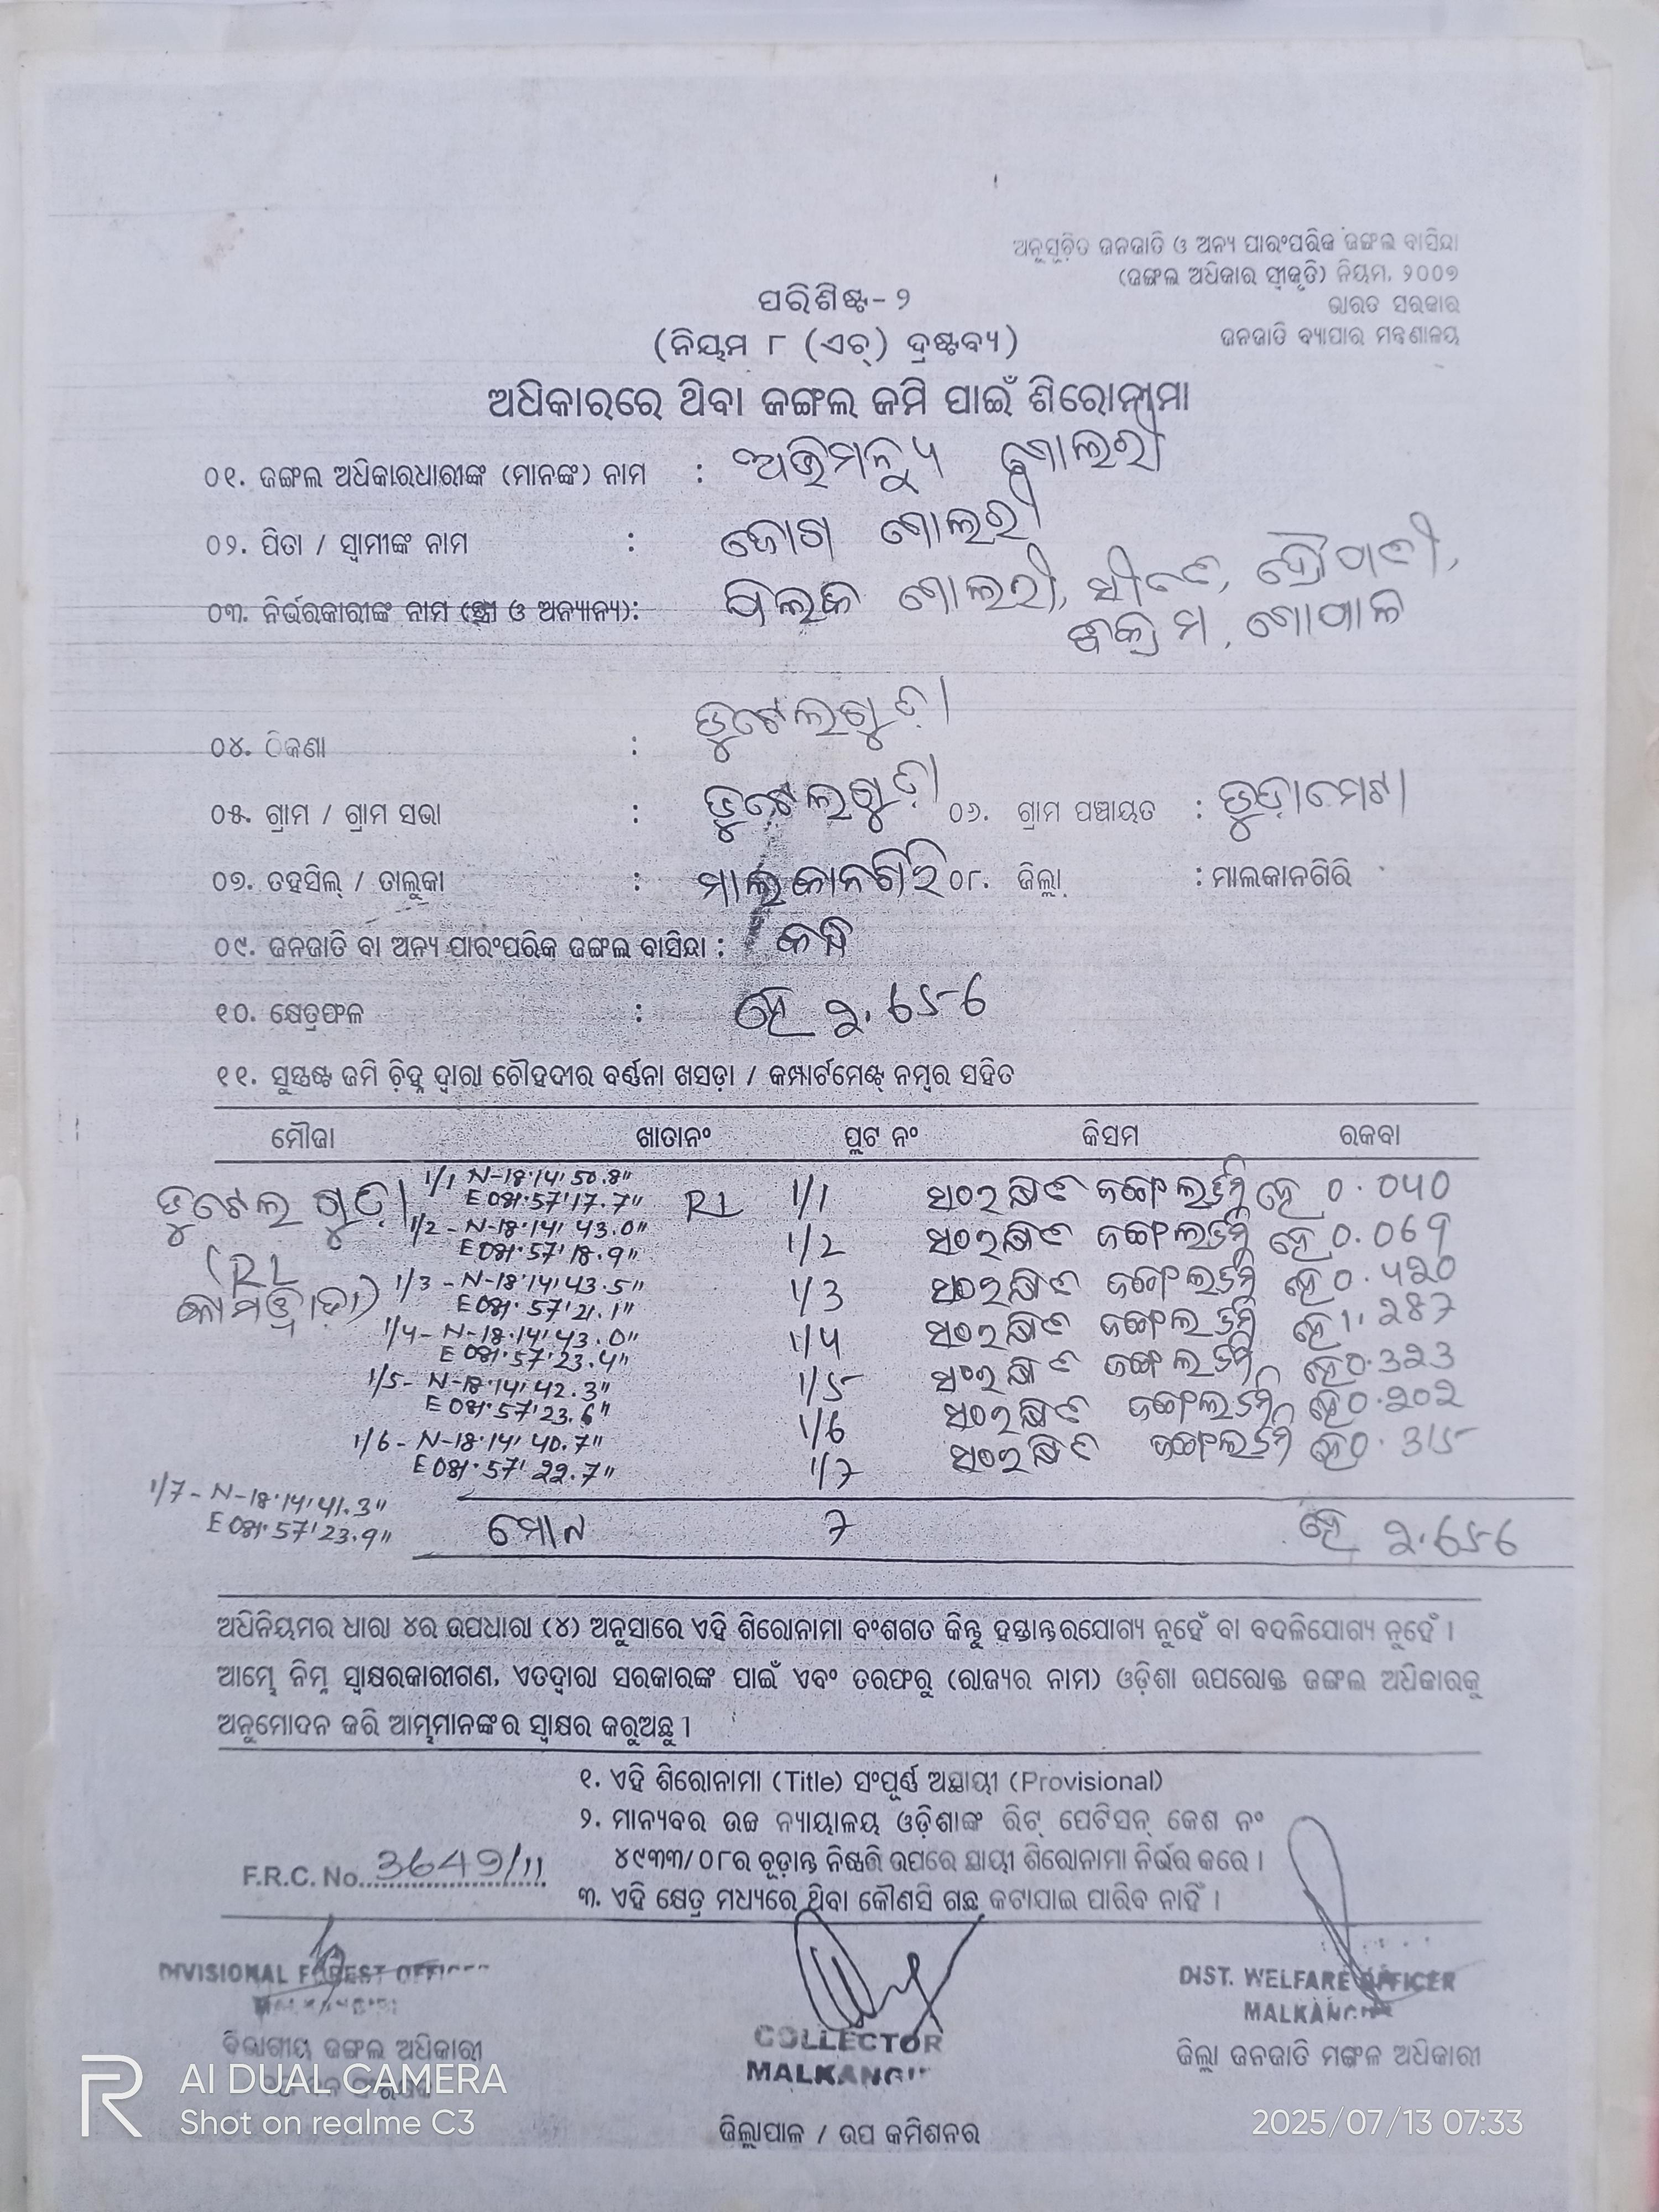 ଅନୁସୂଚିତ ଜନଜାତି ଓ ଅନ୍ୟ ପାରଂପରିକ ଜଙ୍ଗଲ ବାସିନ୍ଦା
(ଜଙ୍ଗଲ ଅଧିକାର ସ୍ୱୀକୃତି) ନିୟମ, ୨୦୦୭
ଭାରତ ସରକାର
ଜନଜାତି ବ୍ୟାପାର ମନ୍ତ୍ରଣାଳୟ
ପରିଶିଷ୍ଟ- ୨
(ନିୟମ ୮ (ଏଚ୍) ଦ୍ରଷ୍ଟବ୍ୟ)
ଅଧିକାରରେ ଥିବା ଜଙ୍ଗଲ ଜମି ପାଇଁ ଶିରୋନାମା
୦୧. ଜଙ୍ଗଲ ଅଧିକାରଧାରୀଙ୍କ (ମାନଙ୍କ) ନାମ : ଅଭିମନ୍ୟୁ ଗୋଲରୀ
୦୨. ପିତା / ସ୍ୱାମୀଙ୍କ ନାମ : ଜୋଗ ଗୋଲରୀ
୦୩. ନିର୍ଭରକାରୀଙ୍କ ନାମ (ସ୍ତ୍ରୀ ଓ ଅନ୍ୟାନ୍ୟ): ଗୋଲରୀ,
ଗୋପାଳ
୦୪. ଠିକଣା : ଭୁଟେଲଗୁଡ଼ା
୦୫. ଗ୍ରାମ / ଗ୍ରାମ ସଭା : ଭୁଟେଲଗୁଡ଼ା ୦୬. ଗ୍ରାମ ପଞ୍ଚାୟତ :
୦୭. ତହସିଲ୍ / ତାଲୁକା : ମାଲକାନଗିରି ୦୮. ଜିଲ୍ଲା : ମାଲକାନଗିରି
୦୯. ଜନଜାତି ବା ଅନ୍ୟ ପାରଂପରିକ ଜଙ୍ଗଲ ବାସିନ୍ଦା : କନ୍ଧ
୧୦. କ୍ଷେତ୍ରଫଳ : ହେ ୨.656
୧୧. ସୁସ୍ପଷ୍ଟ ଜମି ଚିହ୍ନ ଦ୍ୱାରା ଚୌହଦୀର ବର୍ଣ୍ଣନା ଖସଡ଼ା / କମ୍ପାର୍ଟମେଣ୍ଟ୍ ନମ୍ବର ସହିତ
ମୌଜା ଖାତାନଂ ପ୍ଲଟ ନଂ କିସମ ରକବା
ଭୁଟେଲ ଗୁଡ଼ା 1/1 N-18°14' 50.8" RL 1/1 ସଂରକ୍ଷିତ ଜଙ୍ଗଲ ଜମି ହେ 0.040
E 081°57'17.7"
1/2 - N-18°14' 43.0" 1/2 ସଂରକ୍ଷିତ ଜଙ୍ଗଲ ଜମି ହେ 0.069
E 081°57'18.9"
(RL 1/3 - N-18°14' 43.5" 1/3 ସଂରକ୍ଷିତ ଜଙ୍ଗଲ ଜମି ହେ 0.420
E 081°57'21.1"
1/4 - N-18°14' 43.0" 1/4 ସଂରକ୍ଷିତ ଜଙ୍ଗଲ ଜମି ହେ 1.287
E 081°57'23.4"
1/5 - N-18°14' 42.3" 1/5 ସଂରକ୍ଷିତ ଜଙ୍ଗଲ ଜମି ହେ 0.323
E 081°57'23.6"
1/6 - N-18°14' 40.7" 1/6 ସଂରକ୍ଷିତ ଜଙ୍ଗଲ ଜମି ହେ 0.202
E 081°57' 22.7" 1/7 ସଂରକ୍ଷିତ ଜଙ୍ଗଲ ଜମି ହେ 0.315
1/7 - N-18°14' 41.3"
E 081°57'23.9"
ମୋଟ 7 ହେ ୨.656
ଅଧିନିୟମର ଧାରା ୪ର ଉପଧାରା (୪) ଅନୁସାରେ ଏହି ଶିରୋନାମା ବଂଶଗତ କିନ୍ତୁ ହସ୍ତାନ୍ତରଯୋଗ୍ୟ ନୁହେଁ ବା ବଦଳିଯୋଗ୍ୟ ନୁହେଁ ।
ଆମ୍ଭେ ନିମ୍ନ ସ୍ୱାକ୍ଷରକାରୀଗଣ, ଏତଦ୍ୱାରା ସରକାରଙ୍କ ପାଇଁ ଏବଂ ତରଫରୁ (ରାଜ୍ୟର ନାମ) ଓଡ଼ିଶା ଉପରୋକ୍ତ ଜଙ୍ଗଲ ଅଧିକାରକୁ
ଅନୁମୋଦନ କରି ଆମ୍ଭମାନଙ୍କର ସ୍ୱାକ୍ଷର କରୁଅଛୁ ।
୧. ଏହି ଶିରୋନାମା (Title) ସଂପୂର୍ଣ୍ଣ ଅସ୍ଥାୟୀ (Provisional)
୨. ମାନ୍ୟବର ଉଚ୍ଚ ନ୍ୟାୟାଳୟ ଓଡ଼ିଶାଙ୍କ ରିଟ୍ ପେଟିସନ୍ କେଶ ନଂ
୪୯୩୩/୦୮ର ଚୂଡ଼ାନ୍ତ ନିଷ୍ପତ୍ତି ଉପରେ ସ୍ଥାୟୀ ଶିରୋନାମା ନିର୍ଭର କରେ ।
F.R.C. No. 3649/11
୩. ଏହି କ୍ଷେତ୍ର ମଧ୍ୟରେ ଥିବା କୌଣସି ଗଛ କଟାଯାଇ ପାରିବ ନାହିଁ ।
DIVISIONAL FOREST OFFICER
MALKANGIRI
ବିଭାଗୀୟ ଜଙ୍ଗଲ ଅଧିକାରୀ
COLLECTOR
MALKANGIRI
ଜିଲ୍ଲାପାଳ / ଉପ କମିଶନର
DIST. WELFARE OFFICER
MALKANGIRI
ଜିଲ୍ଲା ଜନଜାତି ମଙ୍ଗଳ ଅଧିକାରୀ
AI DUAL CAMERA
Shot on realme C3
2025/07/13 07:33